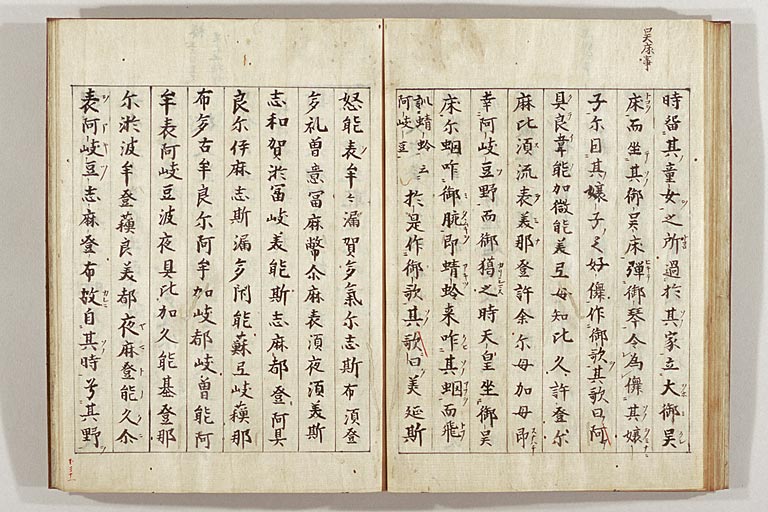 呉床事
時留其童女之所過於其家立大御呉
床而坐其御呉床弾御琴令為儛其嬢
子尓因其嬢子之好儛作御歌其歌曰阿
具良韋能加微能美弖母知比久許登尓
麻比須流袁美那登許余尓母加母即
幸阿岐豆野而御獦之時天皇坐御呉
床尓蝈咋御腕即蜻蛉来咋其蝈而飛
訓蜻蛉云
阿岐豆
於是作御歌其歌曰美延斯
怒能袁牟々漏賀多氣尓志斯布須登
多礼曽意冨麻幣尓麻袁須夜須美斯
志和賀淤冨岐美能斯志麻都登阿具
良尓伊麻志斯漏多閇能蘇弖岐蘓那
布多古牟良尓阿牟加岐都岐曽能阿
牟袁阿岐豆波夜具比加久能基登那
尓淤波牟登蘓良美都夜麻登能久尓
袁阿岐豆志麻登布故自其時号其野